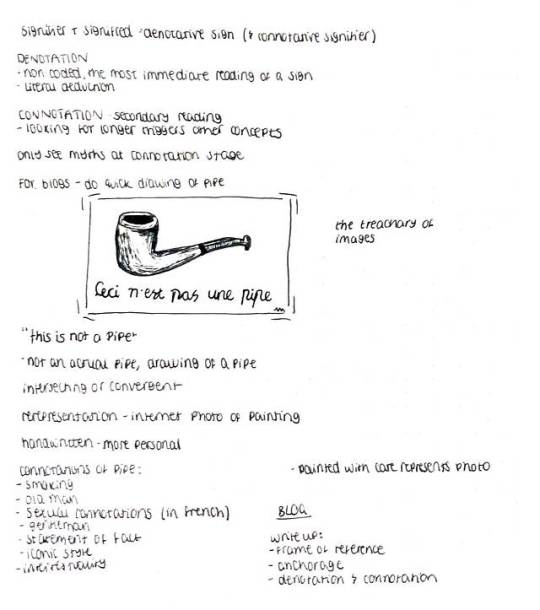 signifier + signified = denotative sign (& connotative signifier)
DENOTATION
- non coded, the most immediate reading of a sign
- literal deduction
CONNOTATION - secondary reading
- looking for longer triggers other concepts
only see myths at connotation stage
FOR blogs - do quick drawing of pipe
the treachary of
images
Ceci n'est pas une pipe
"this is not a pipe"
- not an actual pipe, drawing of a pipe
intersecting or convergent
representation - internet photo of painting
handwritten - more personal
connotations of pipe:
- smoking
- old man
- sexual connotations (in french)
- gentleman
- statement of fact
- iconic style
- intertextuality
- painted with care represents photo
BLOG
write up:
- frame of reference
- anchorage
- denotation & connotation